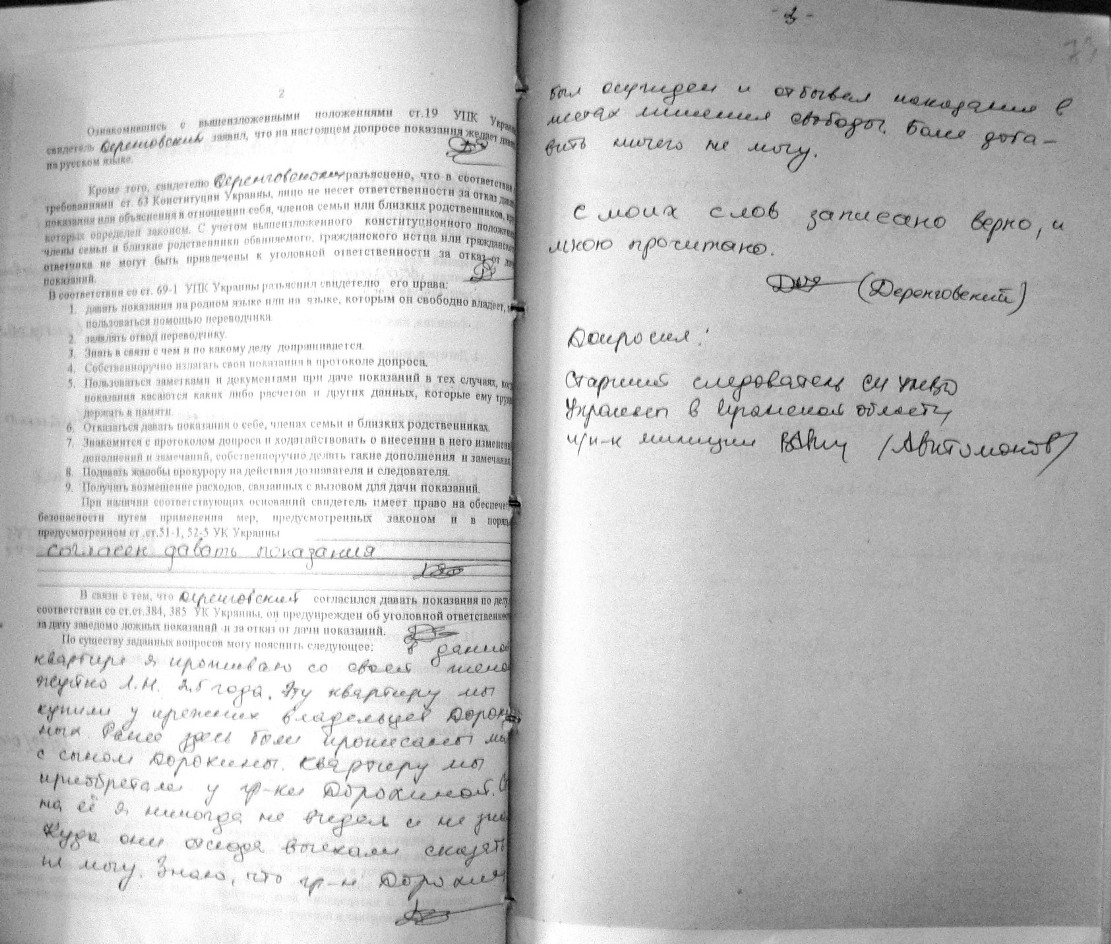 2
Ознакомившись с вышеизложенными положениями ст.19 УПК Украи
свидетель Деренговский заявил, что на настоящем допросе показания желает дават
на русском языке.
Кроме того, свидетелю Деренговскому разъяснено, что в соответствии
требованиями ст. 63 Конституции Украины, лицо не несет ответственности за отказ дават
показания или объяснения в отношении себя, членов семьи или близких родственников, кру
которых определен законом. С учетом вышеизложенного конституционного положени
члены семьи и близкие родственники обвиняемого, гражданского истца или гражданско
ответчика не могут быть привлечены к уголовной ответственности за отказ от дач
показаний.
В соответствии со ст. 69-1 УПК Украины разъяснил свидетелю его права:
1. давать показания на родном языке или на языке, которым он свободно владеет, и
пользоваться помощью переводчика.
2. заявлять отвод переводчику.
3. Знать в связи с чем и по какому делу допрашивается.
4. Собственноручно излагать свои показания в протоколе допроса.
5. Пользоваться заметками и документами при даче показаний в тех случаях, ког
показания касаются каких либо расчетов и других данных, которые ему труд
держать в памяти.
6. Отказаться давать показания о себе, членах семьи и близких родственниках.
7. Знакомится с протоколом допроса и ходатайствовать о внесении в него изменен
дополнений и замечаний, собственноручно делать такие дополнения и замечани
8. Подавать жалобы прокурору на действия дознавателя и следователя.
9. Получать возмещение расходов, связанных с вызовом для дачи показаний.
При наличии соответствующих оснований свидетель имеет право на обеспече
безопасности путем применения мер, предусмотренных законом и в поряд
предусмотренном ст.ст.51-1, 52-5 УК Украины
согласен давать показания
В связи с тем, что Деренговский согласился давать показания по делу
соответствии со ст.ст.384, 385 УК Украины, он предупрежден об уголовной ответственнос
за дачу заведомо ложных показаний и за отказ от дачи показаний.
По существу заданных вопросов могу пояснить следующее: в данной
квартире я проживаю со своей жено
Л.Н. 2.5 года. Эту квартиру мы
купили у прежних владельцев Дорохи
ных. Ранее здесь были прописаны
с сыном Дорохины. Квартиру мы
приобретали у гр-ки Дорохиной. Сы
на её я никогда не видел и не зна
Куда они отсюда выехали сказать
не могу. Знаю, что гр-н Дорохин
- 3 -
73
был осужден и отбывал наказание в
местах лишения свободы. Более доба-
вить ничего не могу.
С моих слов записано верно, и
мною прочитано.
(Деренговский)
Допросил:
Старший следователь СИ
Украины в области
п/п-к милиции /Автомонов/